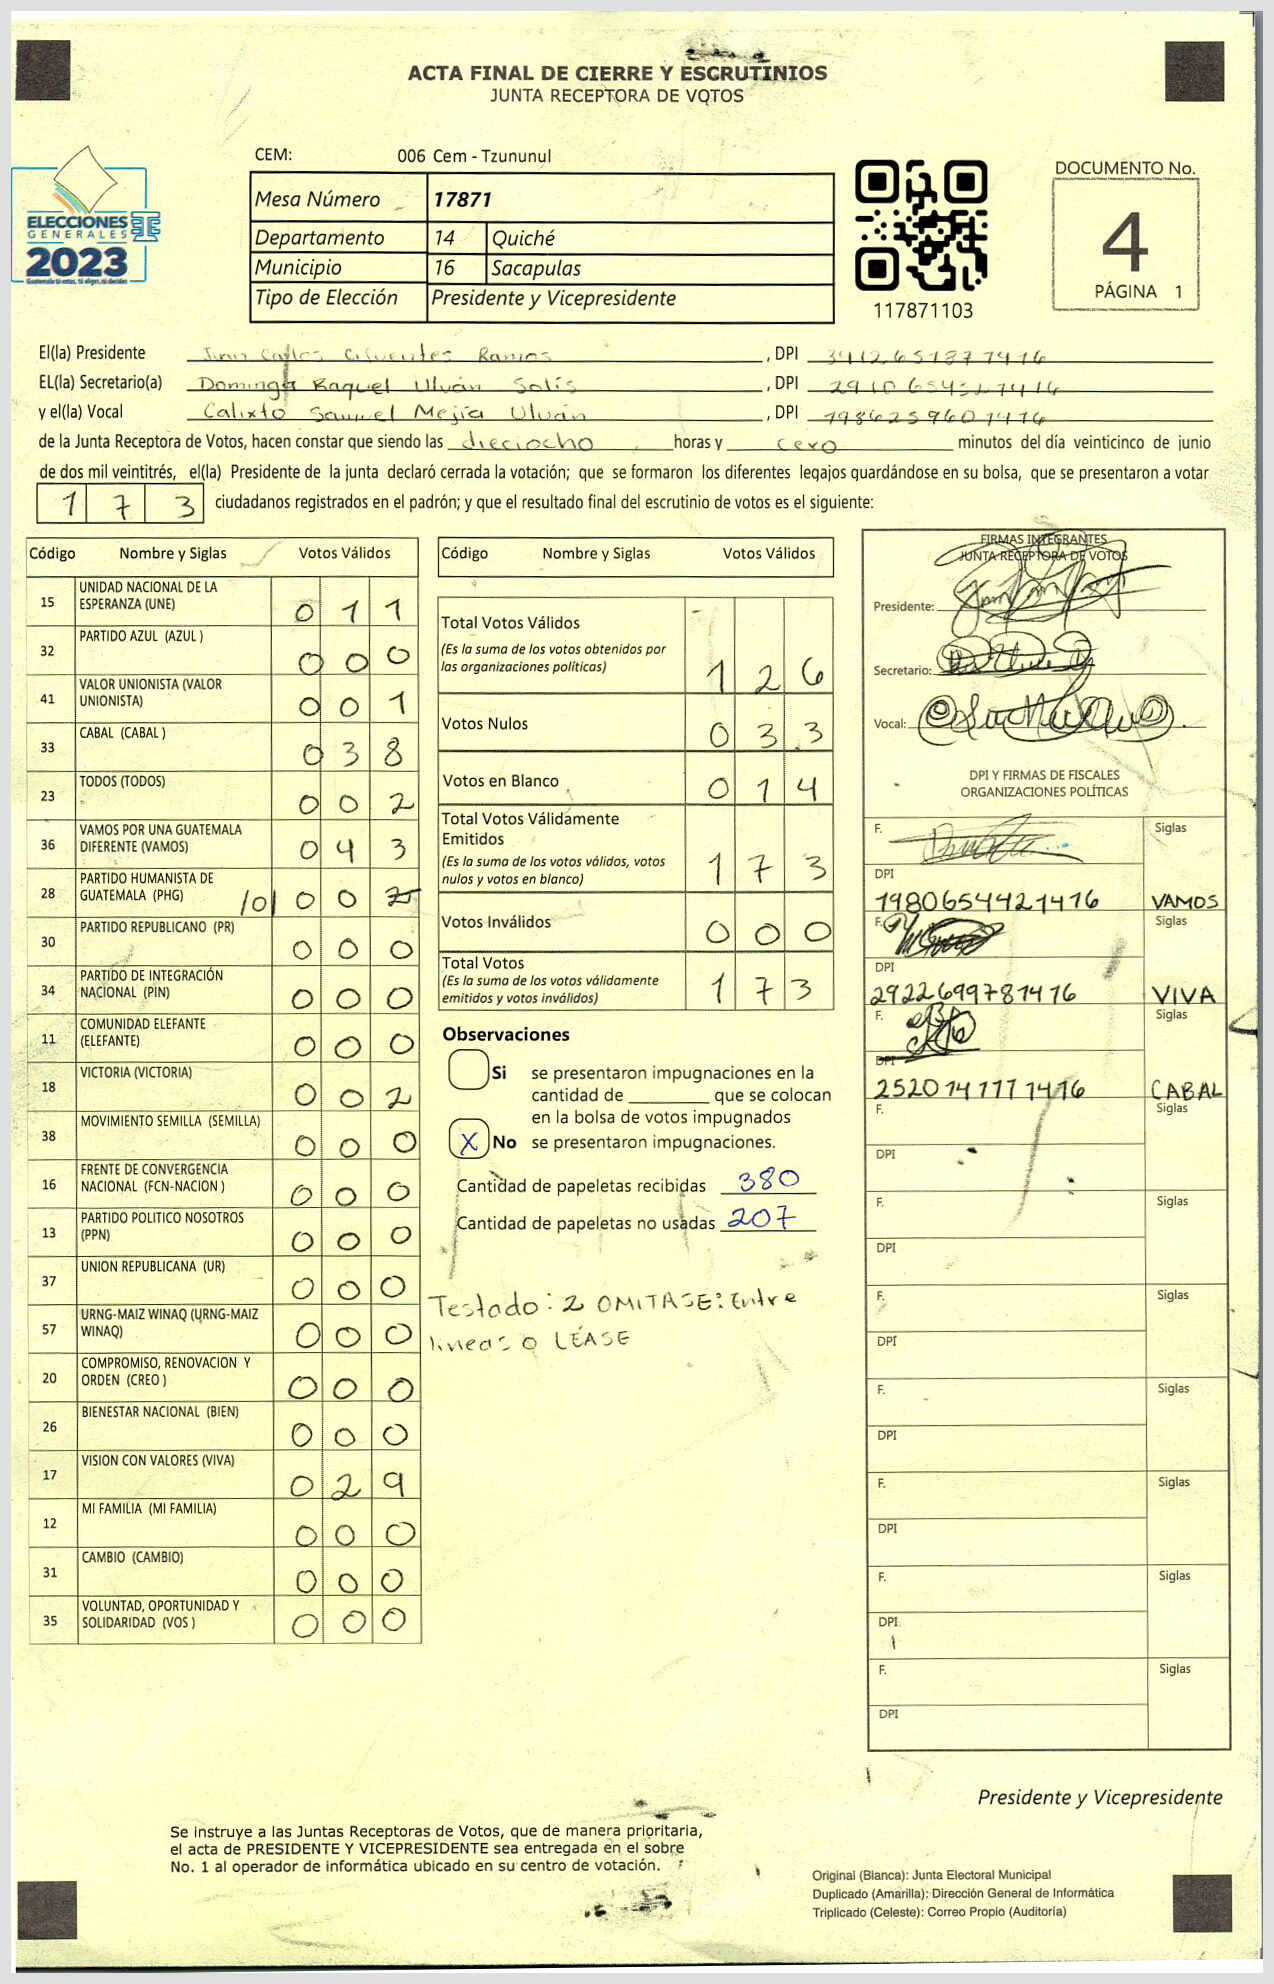 ACTA FINAL DE CIERRE Y ESCRUTINIOS
JUNTA RECEPTORA DE VOTOS
CEM: 006 Cem - Tzununul
ELECCIONES
GENERALES
2023
Guatemala tú votas, tú eliges, tú decides
Mesa Número 17871
Departamento 14 Quiché
Municipio 16 Sacapulas
Tipo de Elección Presidente y Vicepresidente
117871103
DOCUMENTO No.
4
PÁGINA 1
El(la) Presidente Juan Carlos Cifuentes Ramos , DPI
EL(la) Secretario(a) Dominga Raquel Ulván Solís , DPI
y el(la) Vocal Calixto Samuel Mejía Ulván , DPI
de la Junta Receptora de Votos, hacen constar que siendo las dieciocho horas y cero minutos del día veinticinco de junio
de dos mil veintitrés, el(la) Presidente de la junta declaró cerrada la votación; que se formaron los diferentes legajos guardándose en su bolsa, que se presentaron a votar
1 7 3 ciudadanos registrados en el padrón; y que el resultado final del escrutinio de votos es el siguiente:
Código Nombre y Siglas Votos Válidos
15 UNIDAD NACIONAL DE LA ESPERANZA (UNE) 0 1 1
32 PARTIDO AZUL (AZUL ) 0 0 0
41 VALOR UNIONISTA (VALOR UNIONISTA) 0 0 1
33 CABAL (CABAL ) 0 3 8
23 TODOS (TODOS) 0 0 2
36 VAMOS POR UNA GUATEMALA DIFERENTE (VAMOS) 0 4 3
28 PARTIDO HUMANISTA DE GUATEMALA (PHG) /0/ 0 0 2
30 PARTIDO REPUBLICANO (PR) 0 0 0
34 PARTIDO DE INTEGRACIÓN NACIONAL (PIN) 0 0 0
11 COMUNIDAD ELEFANTE (ELEFANTE) 0 0 0
18 VICTORIA (VICTORIA) 0 0 2
38 MOVIMIENTO SEMILLA (SEMILLA) 0 0 0
16 FRENTE DE CONVERGENCIA NACIONAL (FCN-NACION ) 0 0 0
13 PARTIDO POLITICO NOSOTROS (PPN) 0 0 0
37 UNION REPUBLICANA (UR) 0 0 0
57 URNG-MAIZ WINAQ (URNG-MAIZ WINAQ) 0 0 0
20 COMPROMISO, RENOVACION Y ORDEN (CREO ) 0 0 0
26 BIENESTAR NACIONAL (BIEN) 0 0 0
17 VISION CON VALORES (VIVA) 0 2 9
12 MI FAMILIA (MI FAMILIA) 0 0 0
31 CAMBIO (CAMBIO) 0 0 0
35 VOLUNTAD, OPORTUNIDAD Y SOLIDARIDAD (VOS ) 0 0 0
Código Nombre y Siglas Votos Válidos
Total Votos Válidos
(Es la suma de los votos obtenidos por
las organizaciones políticas) 1 2 6
Votos Nulos 0 3 3
Votos en Blanco 0 1 4
Total Votos Válidamente
Emitidos
(Es la suma de los votos válidos, votos
nulos y votos en blanco) 1 7 3
Votos Inválidos 0 0 0
Total Votos
(Es la suma de los votos válidamente
emitidos y votos inválidos) 1 7 3
Observaciones
Si se presentaron impugnaciones en la
cantidad de ________ que se colocan
en la bolsa de votos impugnados
X No se presentaron impugnaciones.
Cantidad de papeletas recibidas 380
Cantidad de papeletas no usadas 207
Testado: 2 OMITASE: Entre
lineas 0 LÉASE
FIRMAS INTEGRANTES
JUNTA RECEPTORA DE VOTOS
Presidente:
Secretario:
Vocal:
DPI Y FIRMAS DE FISCALES
ORGANIZACIONES POLÍTICAS
F. Siglas
DPI
1980654421416 VAMOS
F. Siglas
DPI
2922699781416 VIVA
F. Siglas
DPI
2520141771416 CABAL
F. Siglas
DPI
F. Siglas
DPI
F. Siglas
DPI
F. Siglas
DPI
F. Siglas
DPI
F. Siglas
DPI
F. Siglas
DPI
Presidente y Vicepresidente
Se instruye a las Juntas Receptoras de Votos, que de manera prioritaria,
el acta de PRESIDENTE Y VICEPRESIDENTE sea entregada en el sobre
No. 1 al operador de informática ubicado en su centro de votación.
Original (Blanca): Junta Electoral Municipal
Duplicado (Amarilla): Dirección General de Informática
Triplicado (Celeste): Correo Propio (Auditoría)